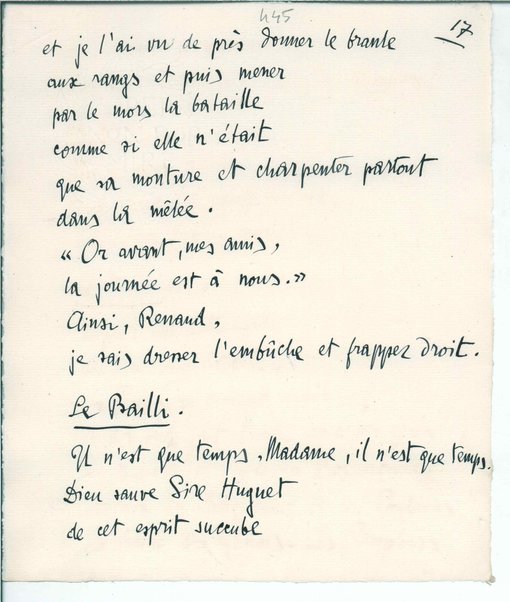 445
17
et je l'ai vu de près donner le branle
aux rangs et puis mener
par le mors la bataille
comme si elle n'était
que sa monture et charpenter partout
dans la mêlée.
« Or avant, mes amis,
la journée est à nous. »
Ainsi, Renaud,
je sais dresser l'embûche et frapper droit.
Le Bailli.
Il n'est que temps, Madame, il n'est que temps.
Dieu sauve Sire Huguet
de cet esprit succube